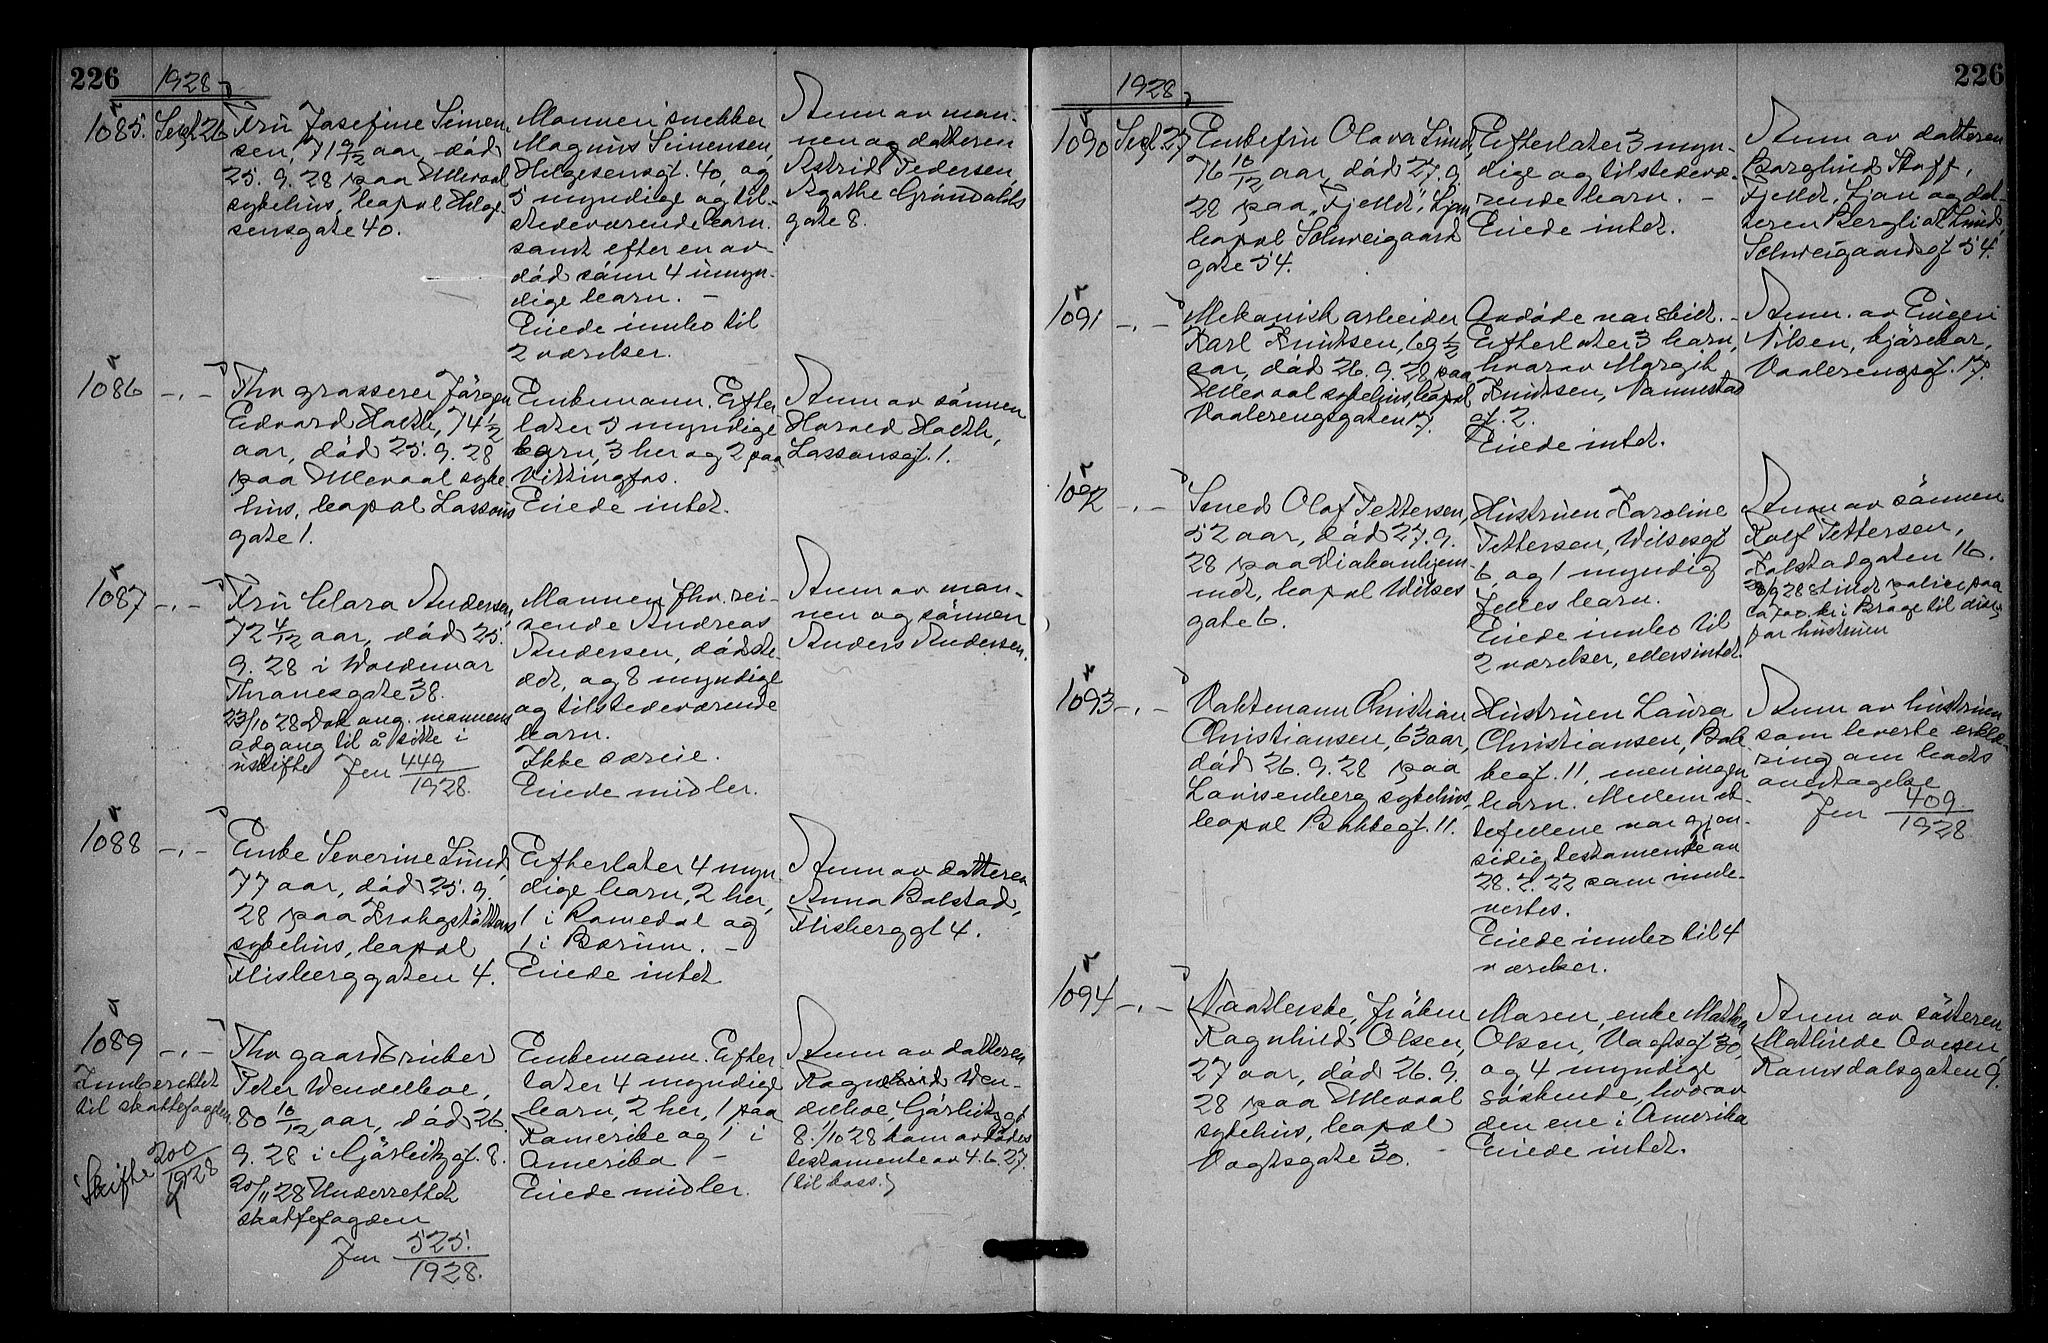 226
1928
1085. Sept 26
Fru Josefine Simen-
sen, 71 9/12 aar, død
25. 9. 28 paa Ullevaal
sykehus, bopæl Helge-
sensgate 40.
Mannen snekker
Magnus Simensen,
Helgesensgt. 40, og
5 myndige og til-
stedeværende barn
samt efter en av-
død sønn 4 umyn-
dige barn. -
Eiede innbo til
2 værelser.
Anm av man-
nen og datteren
Astrid Pedersen,
Agathe Grøndahls
gate 8.
1086 -,-
Fhv grosserer Jørgen
Edvard Holth, 74 1/2
aar, død 25. 9. 28
paa Ullevaal syke
hus, bopæl Lassons
gate 1.
Enkemann. Efter-
later 5 myndige
barn, 3 her og 2 paa
Vittingfos.
Eiede intet.
Anm av sønnen
Harald Holth,
Lassonsgt. 1.
1087 -,-
Fru Clara Andersen,
72 4/12 aar, død 25.
9. 28 i Waldemar
Thranesgate 38.
23/10 28 Dok ang. mannens
adgang til å sitte i
uskifte Jnr 449/1928.
Mannen fhv. rei-
sende Andreas
Andersen, dødste-
det, og 8 myndige
og tilstedeværende
barn.
Ikke særeie.
Eiede midler.
Anm av man-
nen og sønnen
Anders Andersen.
1088 -,-
Enke Severine Lund,
77 aar, død 25. 9.
28 paa Krohgstøttens
sykehus, bopæl
Flisberggaten 4.
Efterlater 4 myn
dige barn, 2 her,
1 i Romedal og
1 i Bærum. -
Eiede intet
Anm av datteren
Anna Bolstad,
Flisberggt 4.
1089 -,-
Innberettet
til skattefogden
Skifte 200/1928
Fhv gaardbruker
Peter Wendelboe,
80 10/12 aar, død 26.
9. 28 i Gørbitzgt. 8.
20/11 28 Underrettet
skattefogden
Jnr 525./1928.
Enkemann. Efter
later 4 myndige
barn, 2 her, 1 paa
Romerike og 1 i
Amerika -
Eiede midler.
Anm av datteren
Ragnhild Wen-
delboe, Gørbitzgt
8. 1/10 28 kom avdødes
testamente av 4. 6. 27.
(til kass.)
226
1928
1090 Sept 27
Enkefru Olava Lund,
76 10/12 aar, død 27. 9.
28 paa "Fjeldt", Ljan
bopæl Schweigaard
gate 54.
Efterlater 3 myn-
dige og tilstedevæ-
rende barn. -
Eiede intet.
Anm av datteren
Borghild Staff,
Fjeldt, Ljan og dat-
teren Bergliot Lund,
Schweigaardsgt 54.
1091 -,-
Mekanisk arbeider
Karl Knutsen, 69 1/2
aar, død 26. 9. 28 paa
Ullevaal sykehus, bopæl
Vaalerengsgaten 17.
Avdøde var skilt. -
Efterlater 3 barn,
hvorav Margit
Knutsen, Nannestad
gt. 2.
Eiede intet.
Anm. av
Nilsen, kjørekar,
Vaalerengsgt. 17.
1092 -,-
Smed Olaf Pettersen,
52 aar, død 27. 9.
28 paa Diakonhjem-
met, bopæl Wilses
gate 6.
Hustruen Karoline
Pettersen, Wilsesgt
6 og 1 myndig
felles barn.
Eiede innbo til
2 værelser, ellers intet.
Anm av sønnen
Rolf Pettersen,
Falstadgaten 16.
28/9 28 Utlndt police paa
ca 700 kr i Brage til disp.
for hustruen
1093 -,-
Vaktmann Christian
Christiansen, 63 aar,
død 26. 9. 28 paa
Lovisenberg sykehus,
bopæl Bakkegt. 11.
Hustruen Laura
Christiansen, Bak
kegt. 11, men ingen
barn. Mellem ek-
tefellene var gjen-
sidig testamente av
28. 2. 22 som innle-
vertes.
Eiede innbo til 4
værelser.
Anm av hustruen
som leverte erklæ-
ring om boets
overtagelse
Jnr 409/1928
1094 -,-
Vaatterske, frøken
Ragnhild Olsen,
27 aar, død 26. 9.
28 paa Ullevaal
sykehus, bopæl
Vogtsgate 30. -
Moren, enke Mathea
Olsen, Vogtsgt 30,
og 4 myndige
søskende, hvorav
den ene i Amerika
Eiede intet.
Anm av søsteren
Mathilde Ovesen,
Romsdalsgaten 9.